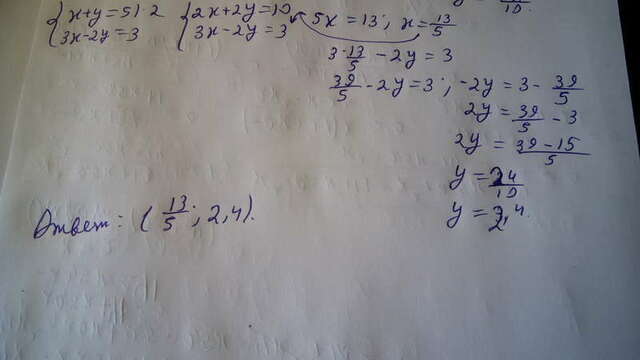 {x+y=5|·2 {2x+2y=10 5x=13; x=13/5
{3x-2y=3 {3x-2y=3
3·13/5 - 2y = 3
39/5 - 2y = 3; -2y = 3 - 39/5
2y = 39/5 - 3
2y = (39-15)/5
y = 24/10
y = 2,4.
Ответ: (13/5; 2,4).